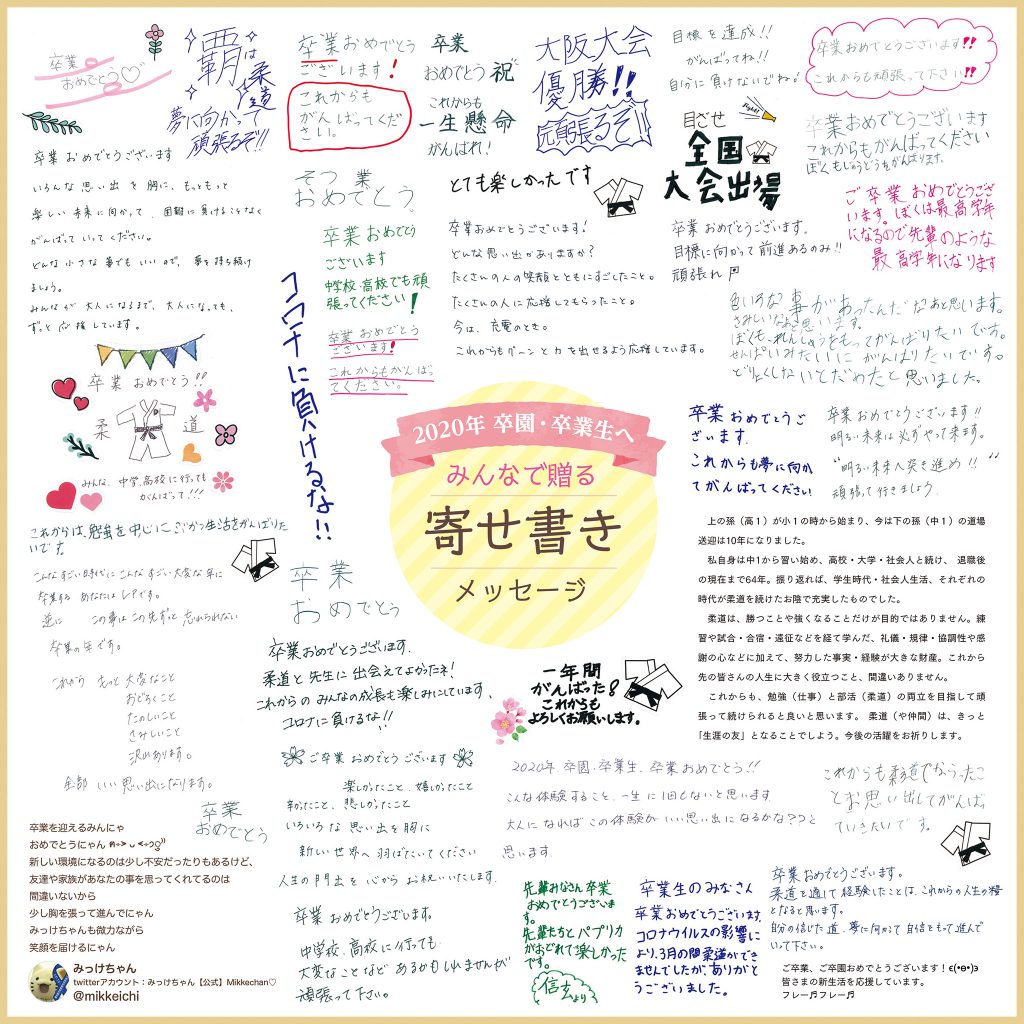 卒業
おめでとう♡
覇は柔道
夢に向かって
頑張るぞ!!
卒業おめでとう
ございます!
これからも
がんばってくだ
さい。
卒業
おめでとう 祝
これからも
一生懸命
がんばれ!
大阪大会
優勝!!
頑張るぞ!!
目標を達成!!
がんばってね!!
自分に負けないでね。
卒業おめでとうございます!!
これからも頑張って下さい!!
卒業 おめでとうございます
いろんな思い出を胸に、もっともっと
楽しい未来に向かって、困難に負けることなく
がんばっていってください。
どんな小さな事でもいいので、夢を持ち続け
ましょう。
みんなが大人になるまで、大人になっても、
ずっと応援しています。
そつ業
おめでとう
卒業おめでとう
ございます
中学校、高校でも頑
張ってください!
卒業おめでとう
ございます!
これからもがんばっ
てください。
とても楽しかったです
卒業おめでとうございます!
どんな思い出がありますか?
たくさんの人の笑顔とともにすごしたこと。
たくさんの人に応援してもらったこと。
今は、充電のとき。
これからもグーンと力を出せるよう応援しています。
Fight!
目ざせ
全国
大会出場
卒業おめでとうございます。
目標に向かって前進あるのみ!!
頑張れ
卒業おめでとうございます
これからもがんばってください
ぼくもじゅうどうもがんばります。
ご卒業おめでとうござ
います。ぼくは最高学年
になるので先輩のような
最高学年になります
色いろな事があったんだなあと思います。
さみしいなあと思います。
ぼくも、れんしゅうをもってがんばりたいです。
せんぱいみたいにがんばりたいです。
どりょくしないとだめだと思いました。
コロナに負けるな!!
卒業おめでとう!!
柔道
みんな、中学、高校に行っても
がんばって!!!
2020年 卒園・卒業生へ
みんなで贈る
寄せ書き
メッセージ
卒業おめでとうご
ざいます。
これからも夢に向か
てがんばってください!
卒業おめでとうございます!!
明るい未来は必ずやって来ます。
"明るい未来へ突き進め!!"
頑張って行きましょう。
これからは、勉強を中じにぶかつ生活をがんばりた
いです。
こんなすごい時代にこんなすごい大変な年に
卒業するあなたはレアです。
逆に この事はこの先ずっと忘れられない
卒業の年です。
これから もっと大変なこと
おどろくこと
たのしいこと
さみしいこと
沢山あります。
全部いい思い出になります。
卒業
おめでとう
卒業
おめでとう
卒業おめでとうございます。
柔道と先生に出会えてよかたネ!
これからのみんなの成長も楽しみにしています、
コロナに負けるな!!
ご卒業おめでとうございます
楽しかったこと、嬉しかったこと
辛かたこと、悲しかたこと
いろいろな思い出を胸に
新しい世界へ羽ばたいてください
人生の門出を心からお祝いいたします。
卒業おめでとうございます。
中学校、高校に行っても
大変なことなどあるかもしれませんが
頑張って下さい。
一年間
がんばった!
これからも
よろしくお願いします。
上の孫(高1)が小1の時から始まり、今は下の孫(中1)の道場
送迎は10年になりました。
私自身は中1から習い始め、高校・大学・社会人と続け、 退職後
の現在まで64年。振り返れば、学生時代・社会人生活、それぞれの
時代が柔道を続けたお陰で充実したものでした。
柔道は、勝つことや強くなることだけが目的ではありません。練
習や試合・合宿・遠征などを経て学んだ、礼儀・規律・協調性や感
謝の心などに加えて、努力した事実・経験が大きな財産。これから
先の皆さんの人生に大きく役立つこと、間違いありません。
これからも、勉強(仕事)と部活(柔道)の両立を目指して頑
張って続けられると良いと思います。 柔道(や仲間)は、きっと
「生涯の友」となることでしょう。今後の活躍をお祈りします。
2020年、卒園、卒業生、卒業おめでとう!!
こんな体験すること、一生に1回もないと思います
大人になればこの体験がいい思い出になるかな??と
思います。
これからも柔道でならったこ
とお思い出してがんばっ
ていきたいです。
卒業を迎えるみんにゃ
おめでとうにゃん
新しい環境になるのは少し不安だったりもあるけど、
友達や家族があなたの事を思ってくれてるのは
間違いないから
少し胸を張って進んでにゃん
みっけちゃんも微力ながら
笑顔を届けるにゃん
みっけちゃん
twitterアカウント:みっけちゃん【公式】Mikkechan♡
@mikkeichi
先輩みなさん卒業
おめでとうございま
す。
先輩たちとパプリカ
がおどれて楽しかった
です。
信玄より
卒業生のみなさん
卒業おめでとうございます。
コロナウイルスの影響に
より、3月の間柔道ができ
ませんでしたが、ありがと
うございました。
卒業おめでとうございます。
柔道を通して経験したことは、これからの人生の糧
となると思います。
自分の信じた道、夢に向かって自信をもって進んで
いって下さい。
ご卒業、ご卒園おめでとうございます!ϵ(•ө•)϶
皆さまの新生活を応援しています。
フレー♬フレー♬